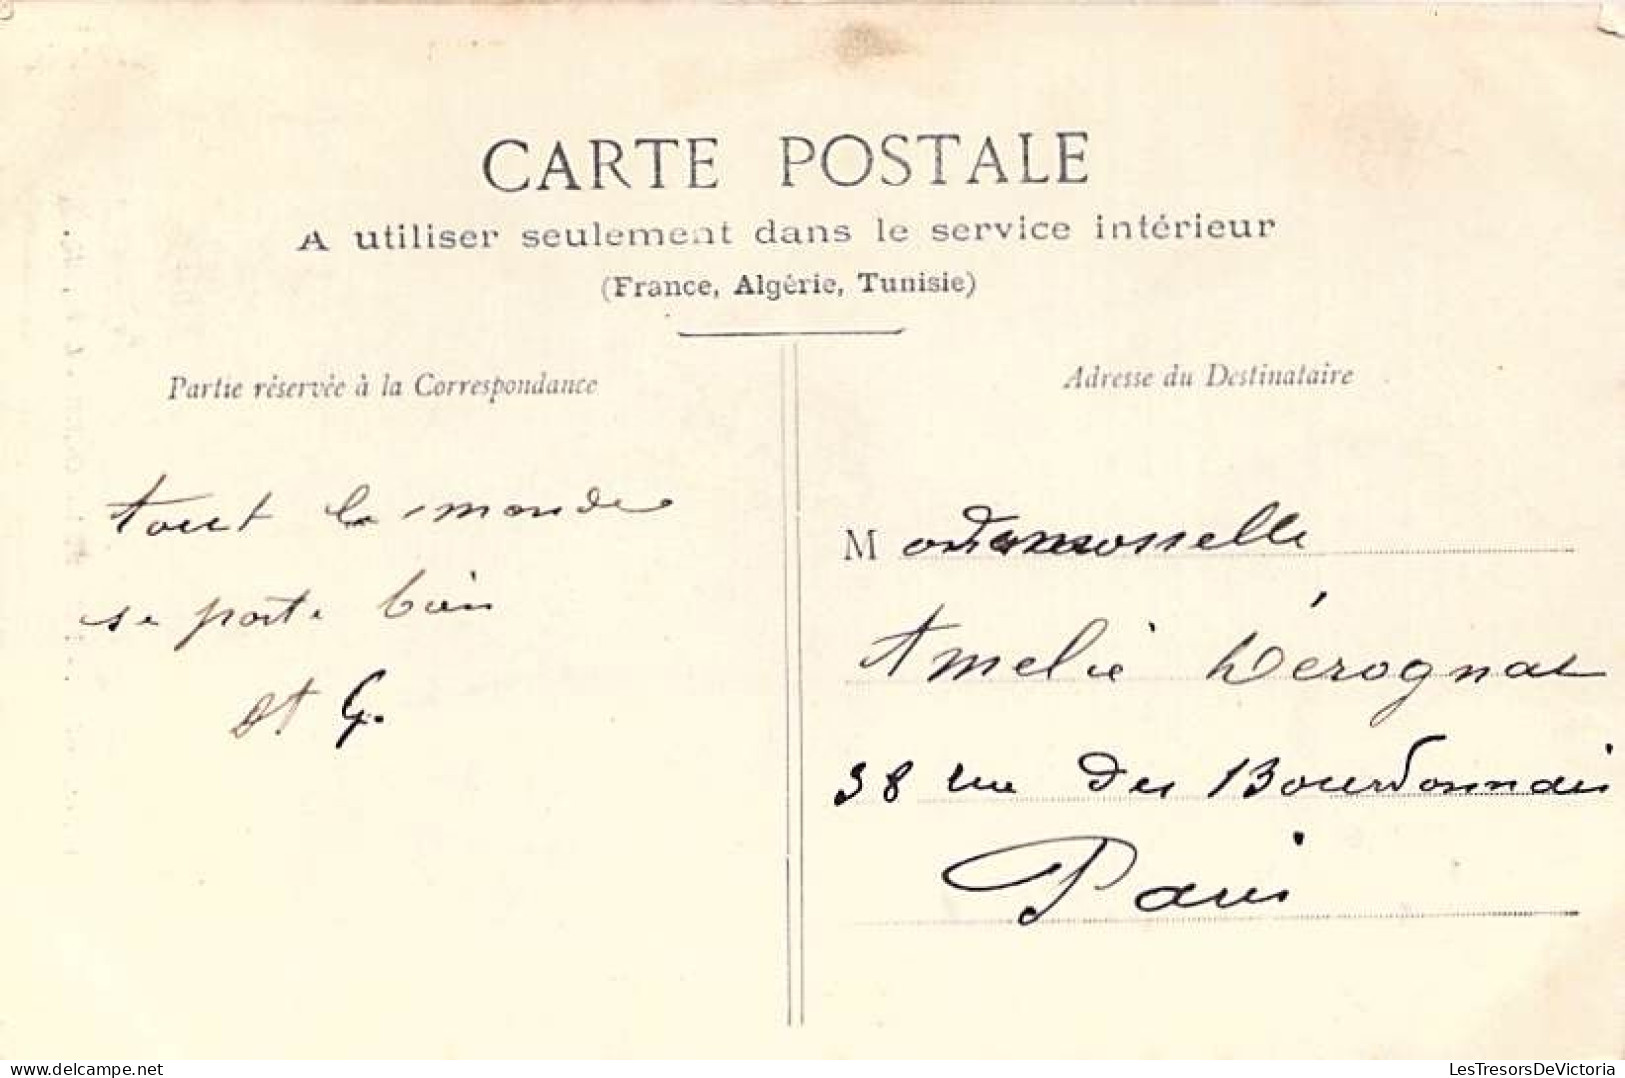 CARTE POSTALE
A utiliser seulement dans le service intérieur
(France, Algérie, Tunisie)
Partie réservée à la Correspondance
tout le monde
se porte bien
G.
Adresse du Destinataire
Mademoiselle
Amelie Dérognat
38 rue des Bourdonnais
Paris
delcampe.net
LesTresorsDeVictoria